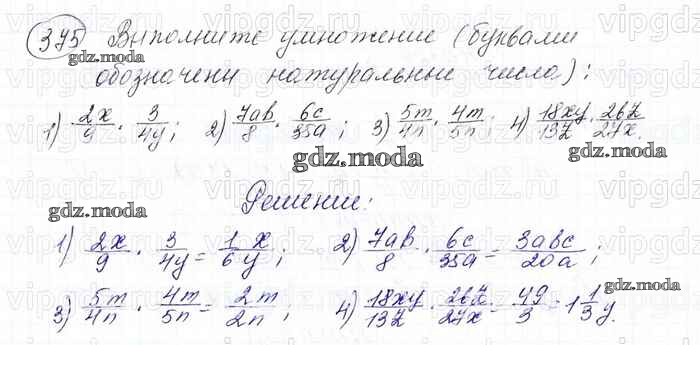 375 Выполните умножение (буквами
обозначены натуральные числа):
1) 2x/9 · 3/4y; 2) 7ab/8 · 6c/35a; 3) 5m/4n · 4m/5n; 4) 18xy/13z · 26z/27x.
Решение:
1) 2x/9 · 3/4y = 1x/6y; 2) 7ab/8 · 6c/35a = 3abc/20a;
3) 5m/4n · 4m/5n = 2m/2n; 4) 18xy/13z · 26z/27x = 4y/3 = 1 1/3 y.
gdz.moda
gdz.moda
gdz.moda
gdz.moda
gdz.moda
gdz.moda
gdz.moda